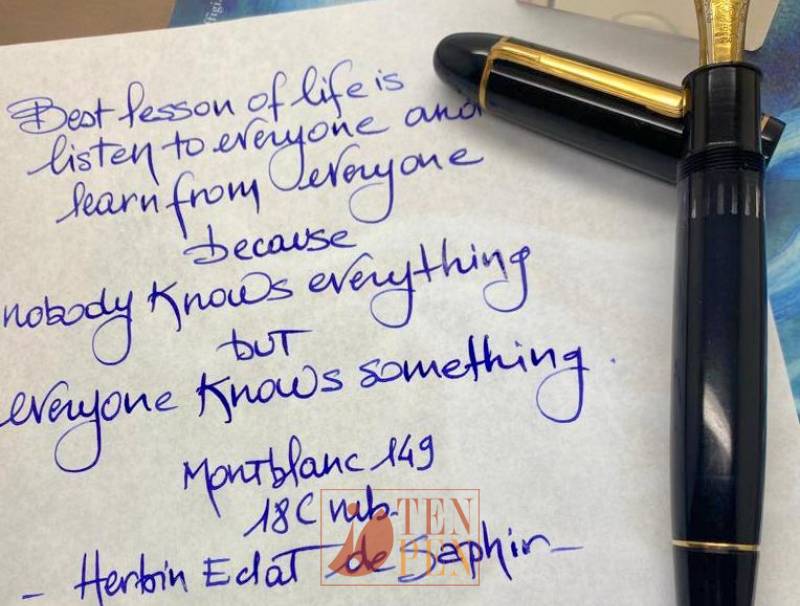 Best lesson of life is
listen to everyone and
learn from everyone
because
nobody knows everything
but
everyone knows something.
Montblanc 149
18C nib.
- Herbin Eclat de Saphir -
TEN
PEN